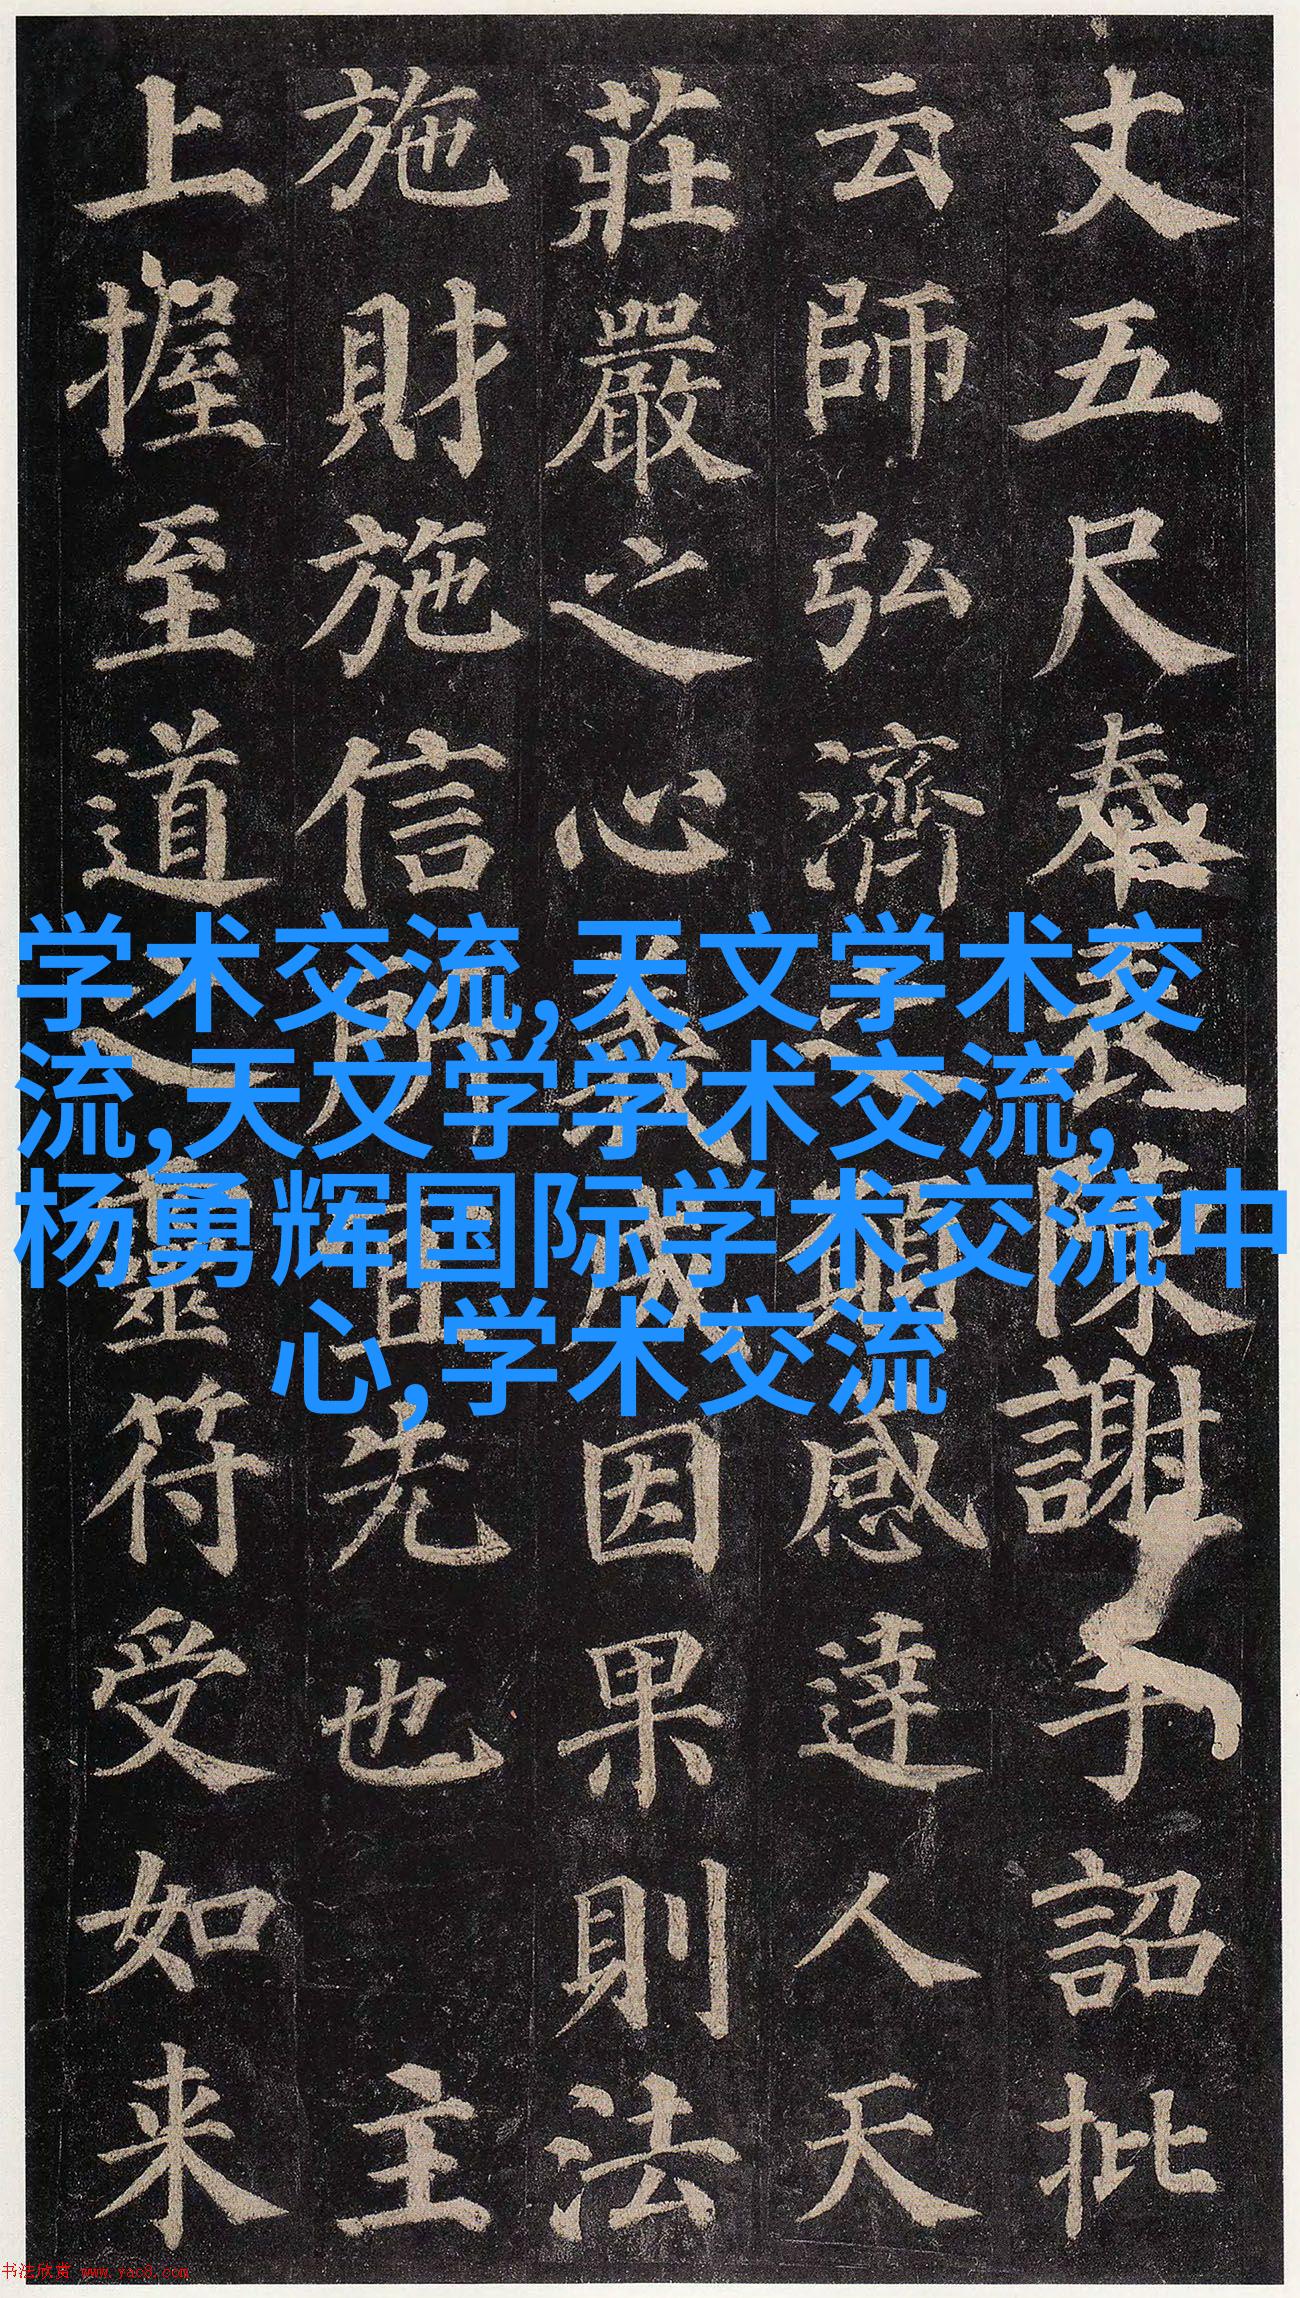 丈五尺奉表陳謝手詔批
云師弘濟之願感達人天
莊嚴之心義成因果則法
施財施信所先也 主
上握至道之靈符受如来
学术交流,天文学术交
流,天文学学术交流,
杨勇辉国际学术交流中
心,学术交流
书法欣赏 www.yac8.com